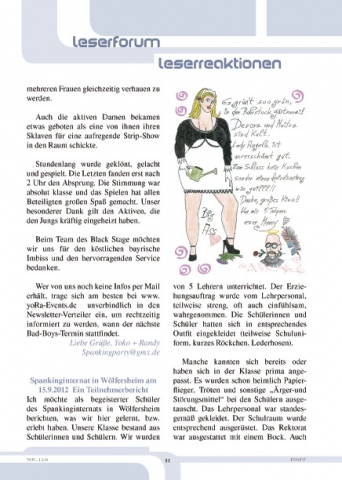 leserforum
leserreaktionen
mehreren Frauen gleichzeitig verhauen zu
werden.
Auch die aktiven Damen bekamen
etwas geboten als eine von ihnen ihren
Sklaven für eine aufregende Strip-Show
in den Raum schickte.
Stundenlang wurde geklönt, gelacht
und gespielt. Die Letzten fanden erst nach
2 Uhr den Absprung. Die Stimmung war
absolut klasse und das Spielen hat allen
Beteiligten großen Spaß gemacht. Unser
besonderer Dank gilt den Aktiven, die
den Jungs kräftig eingeheizt haben.
Beim Team des Black Stage möchten
wir uns für den köstlichen bayrische
Imbiss und den hervorragenden Service
bedanken.
Wer von uns noch keine Infos per Mail
erhält, trage sich am besten bei www.
yoRa-Events.de unverbindlich in den
Newsletter-Verteiler ein, um rechtzeitig
informiert zu werden, wann der nächste
Bad-Boys-Termin stattfindet.
Liebe Grüße, Yoko + Randy
Spankingparty@gmx.de
Spankinginternat in Wölfersheim am
15.9.2012 Ein Teilnehmerbericht
Ich möchte als begeisterter Schüler
des Spankinginternats in Wölfersheim
berichten, was wir hier gelernt, bzw.
erlebt haben. Unsere Klasse bestand aus
Schülerinnen und Schülern. Wir wurden
Es grünt so grün,
in der
Derora und Maitra
sind Kult.
Lady
unverschämt gut.
Zum Schluss kein Kuchen
sondern
wie geil!!!!
Danke, großes Kino!!
Big
Kiss
von 5 Lehrern unterrichtet. Der Erzie-
hungsauftrag wurde vom Lehrpersonal,
teilweise streng, oft auch einfühlsam,
wahrgenommen. Die Schülerinnen und
Schüler hatten sich in entsprechendes
Outfit eingekleidet (teilweise Schuluni-
form, kurzes Röckchen, Lederhosen).
Manche kannten sich bereits oder
haben sich in der Klasse prima ange-
passt. Es wurden schon heimlich Papier-
flieger, Tröten und sonstige „Ärger-und
Störungsmittel" bei den Schülern ausge-
tauscht. Das Lehrpersonal war standes-
gemäß gekleidet. Der Schulraum wurde
entsprechend ausgerüstet. Das Rektorat
war ausgestattet mit einem Bock. Auch